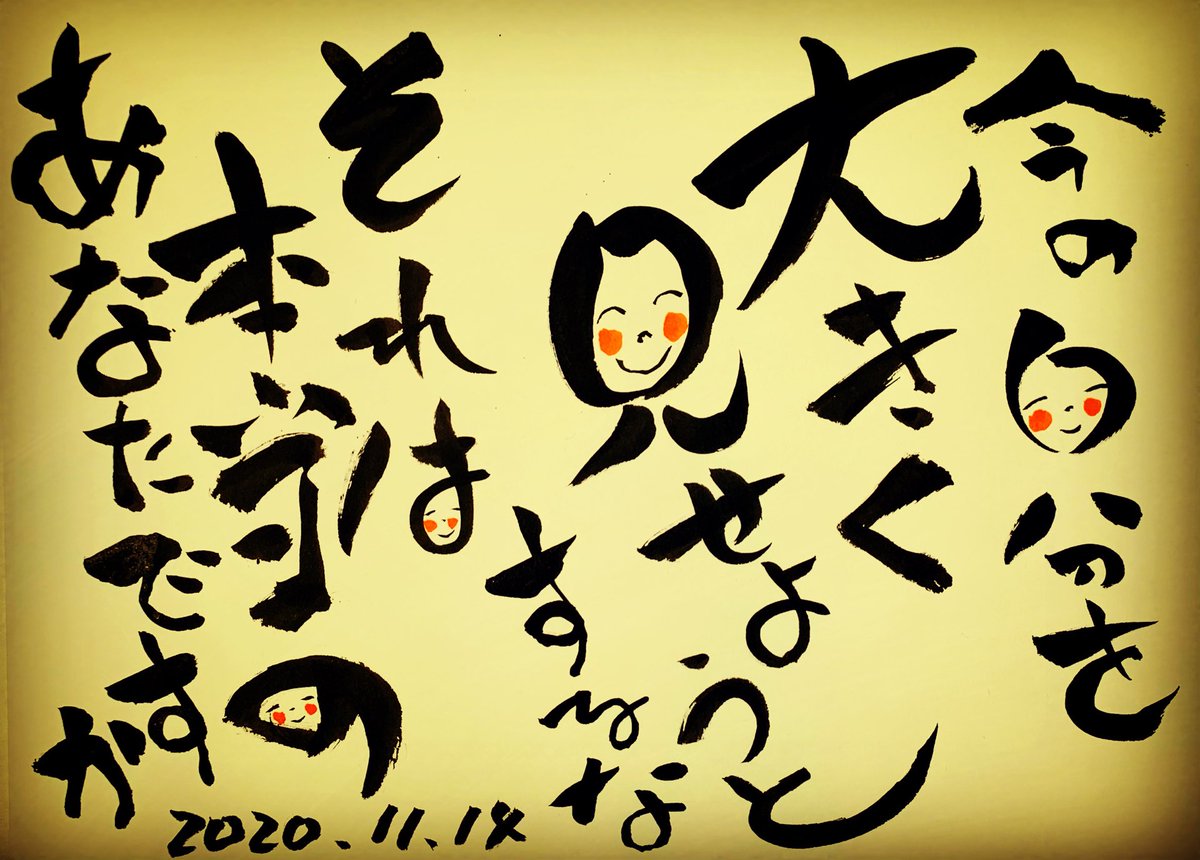 今の自分を
大きく
見せようと
するな
それは
本当の
あなたですか
2020.11.14